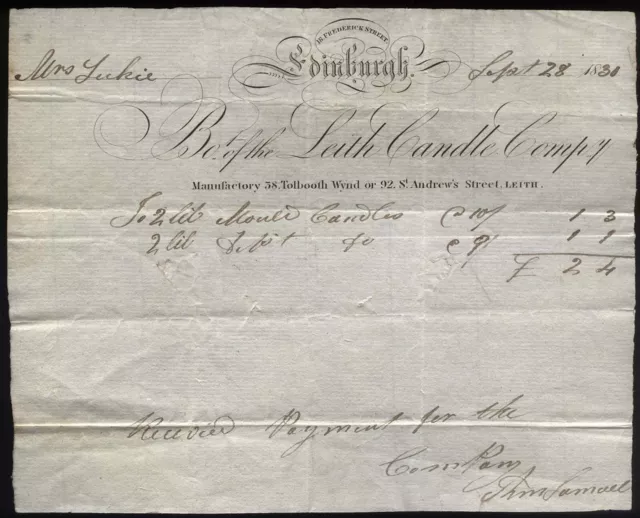 18, FREDERICK STREET,
Edinburgh.
Mrs Luckie Sept 28 1830
Bot. of the Leith Candle Compy
Manufactory 58, Tolbooth Wynd or 92, St. Andrew's Street, LEITH.
To 2 lib Mould Candles @ 10/ 1 3
2 lib Dipt do @ 9/ 1 1
£ 2 4
Received Payment for the
Company